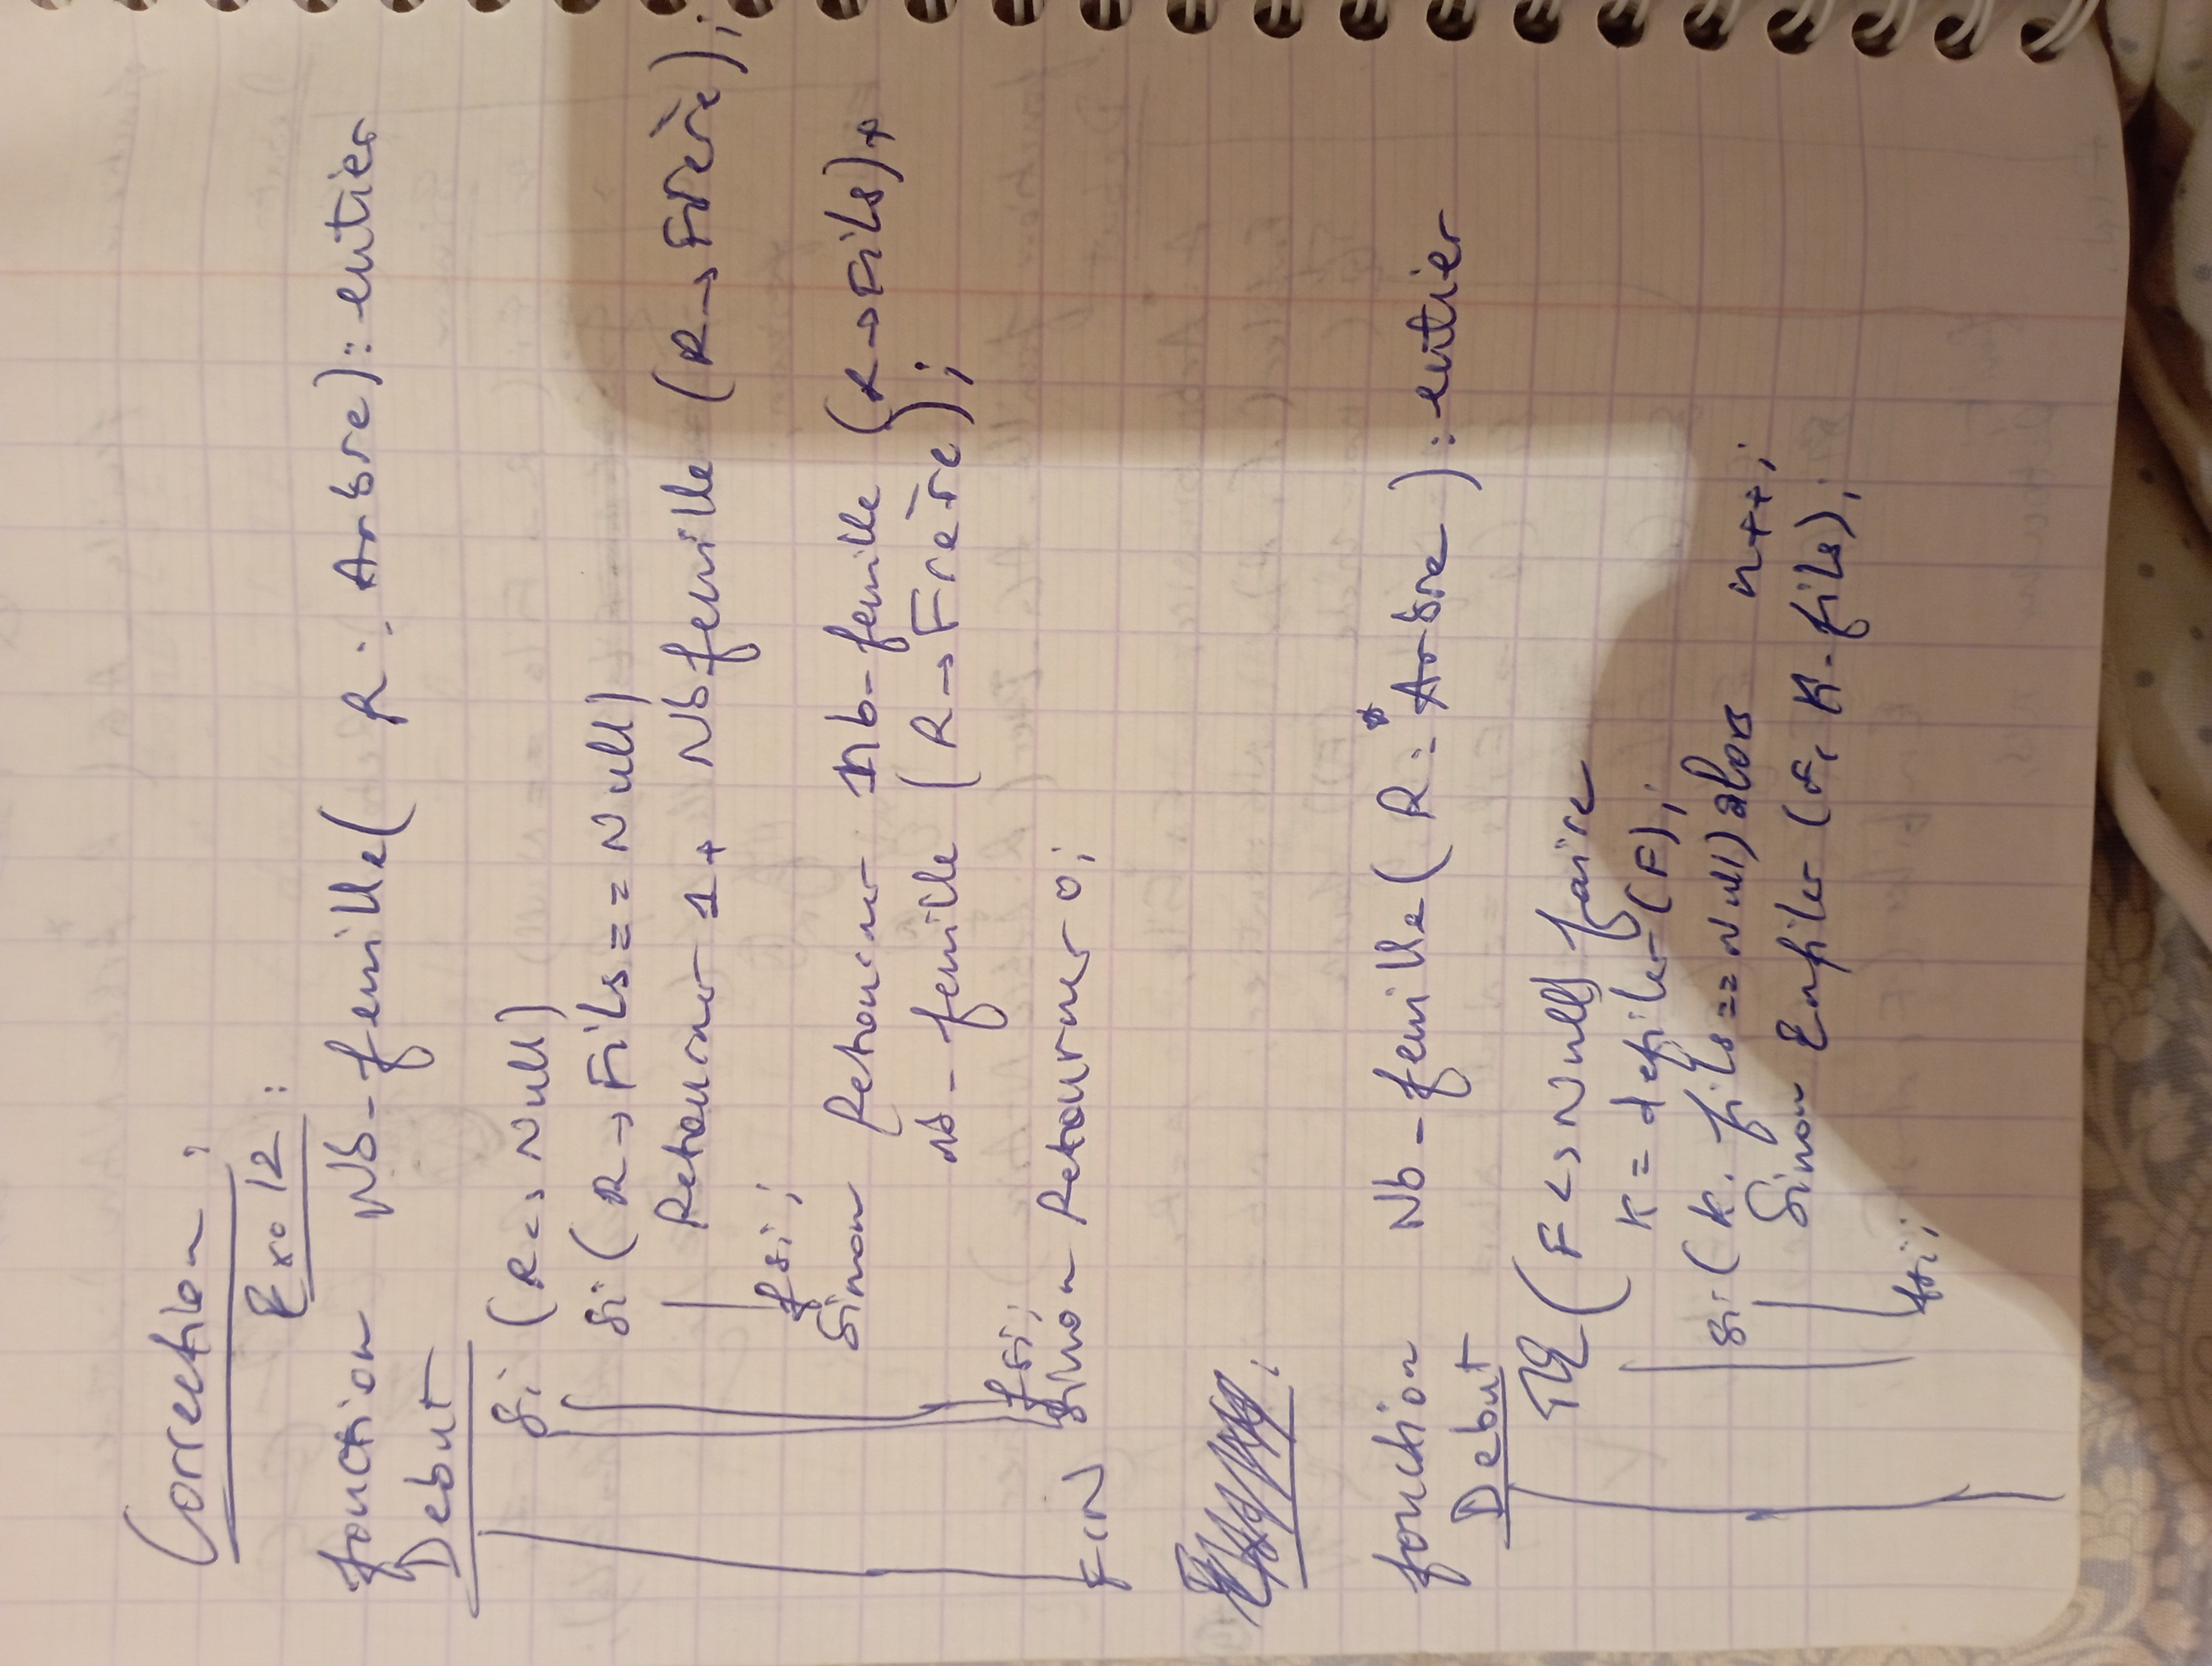 Correction :
Exo 12 :
fonction Nb-feuille( R : Arbre) : entier
Debut
Si (R<> Null)
Si ( R → Fils == Null)
Retourner 1 + Nb feuille (R → Frère) ;
fsi ;
Sinon Retourner nb-feuille (R → Fils) +
nb-feuille (R → Frère) ;
fsi ;
Sinon Retourner 0 ;
FiN
fonction Nb-feuille( R : *Arbre) : entier
Debut
TQ ( F <> Null) faire
k = defiler (F) ;
Si (k. fils == Null) alors n++ ;
Sinon Enfiler (F, K-fils) ;
fsi ;